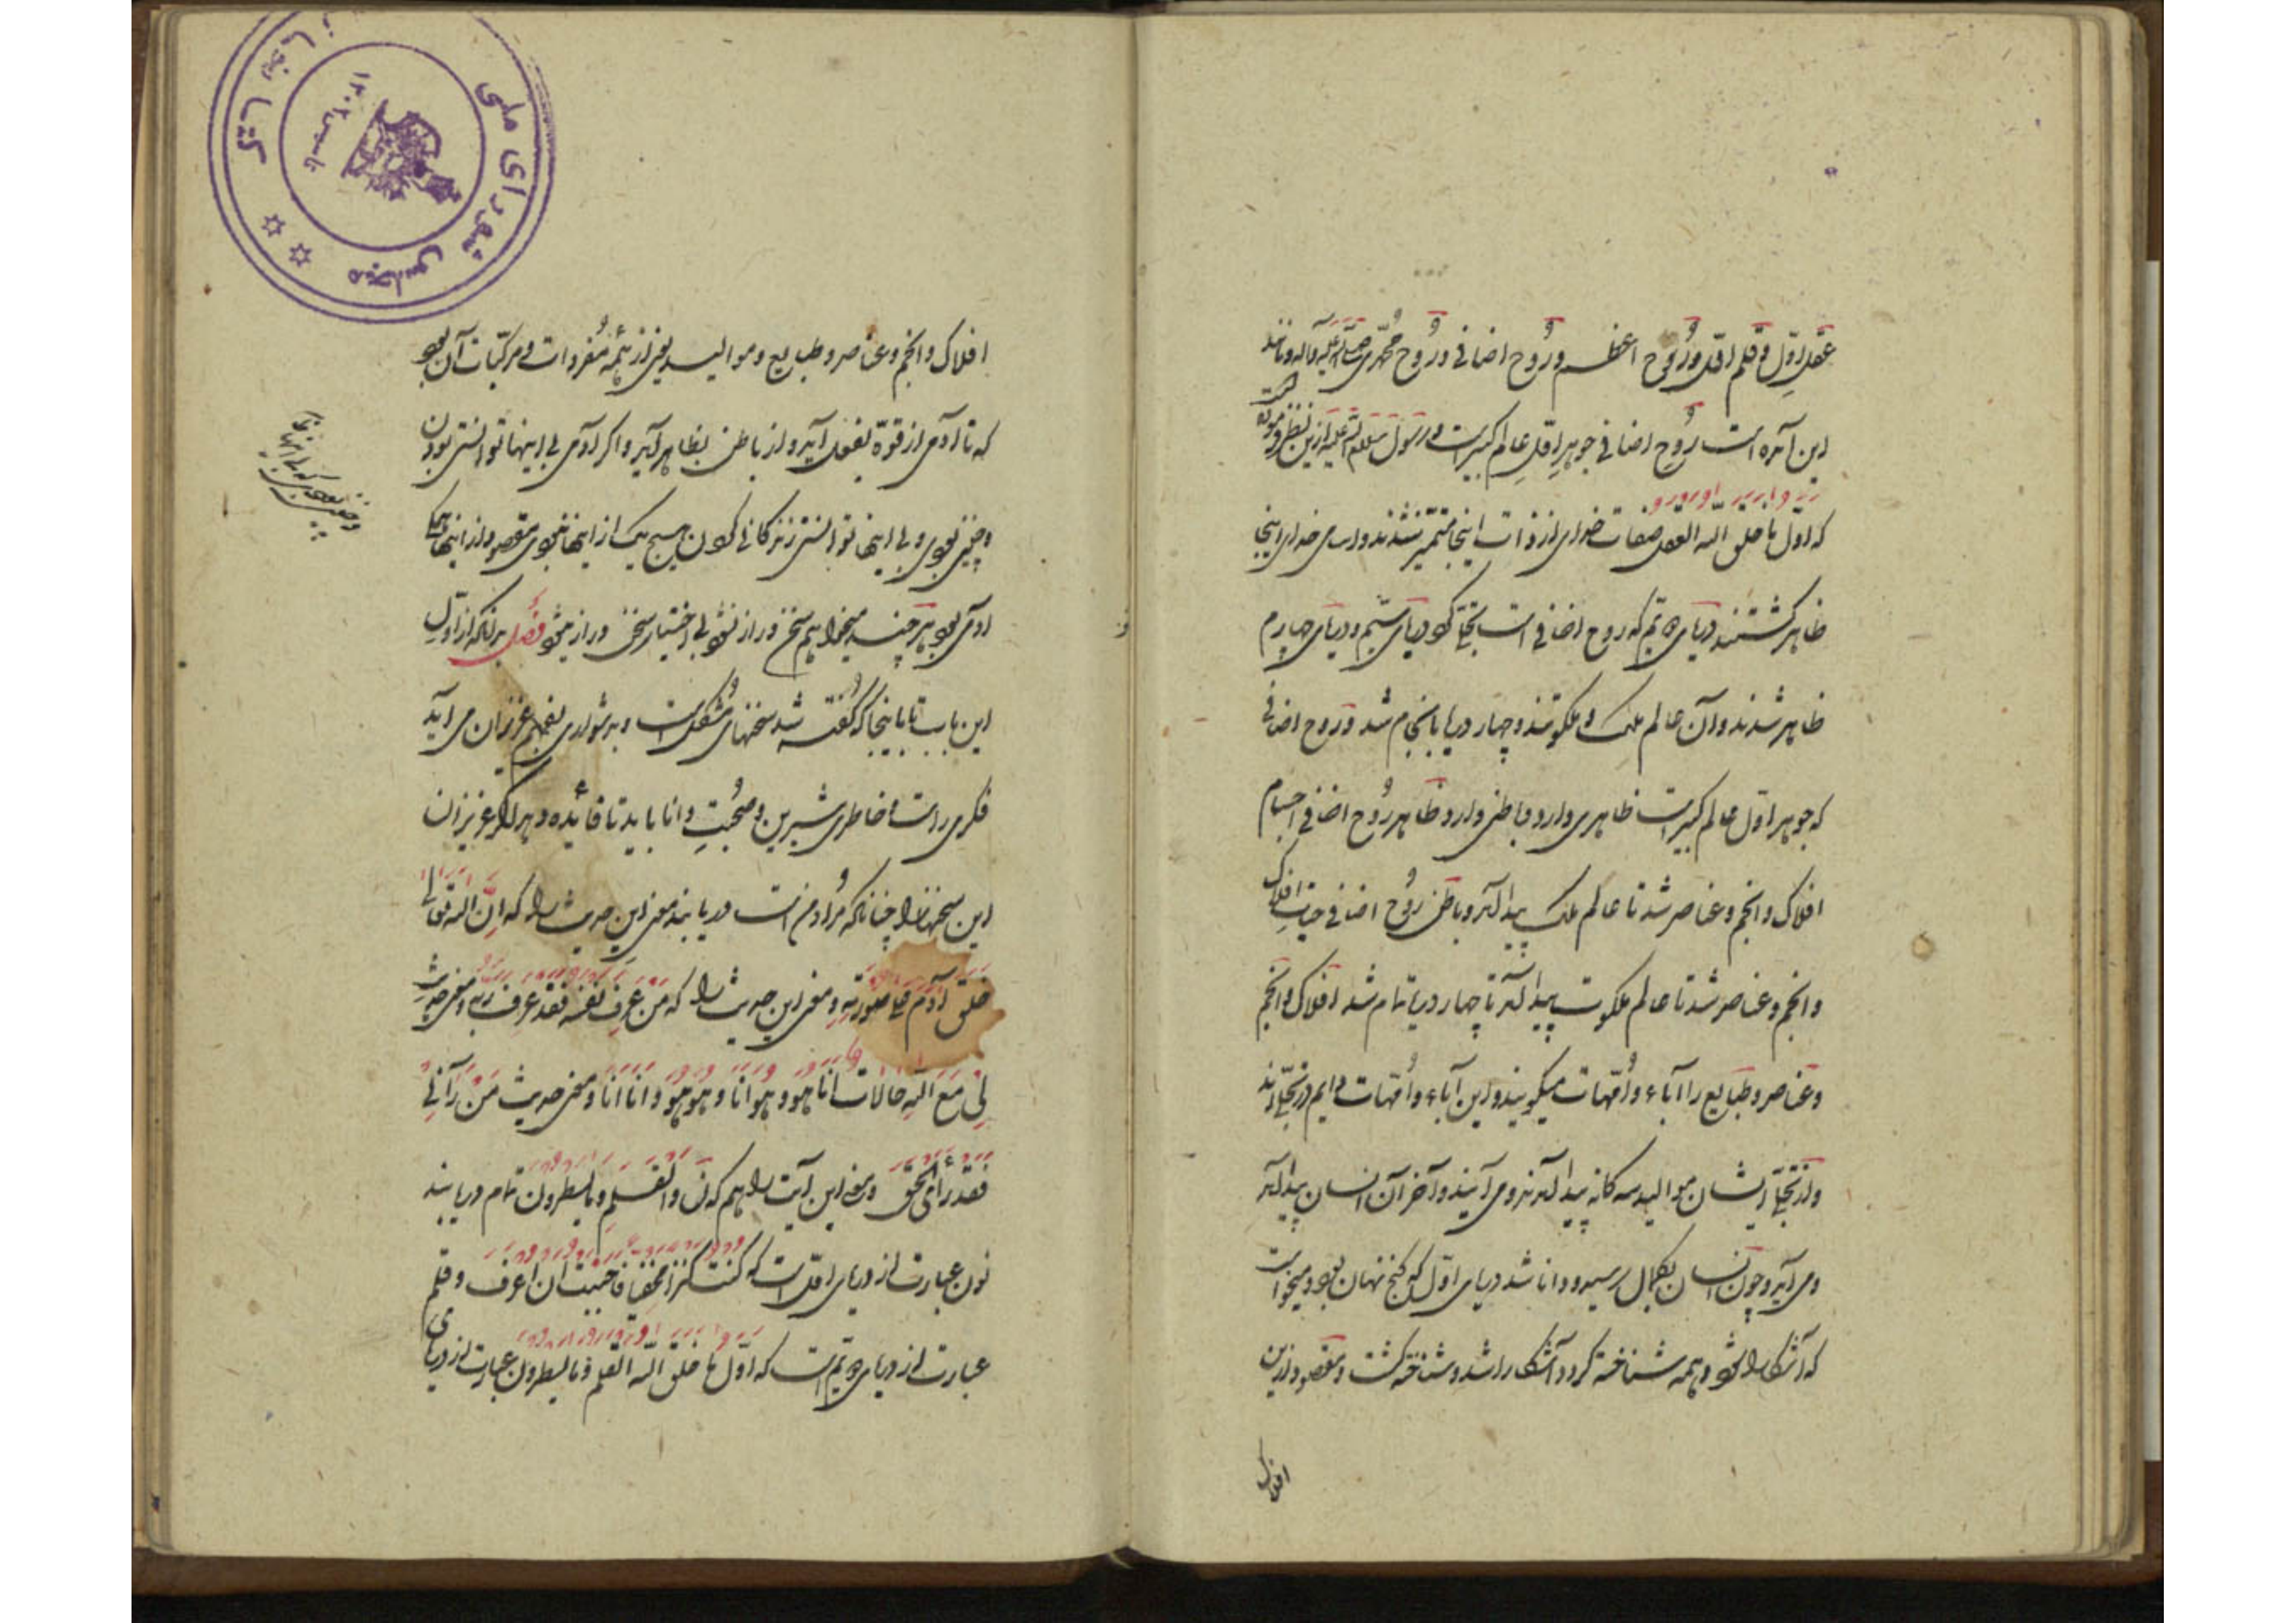 عقل اول و قلم اول و رُوح اعظم و رُوح اضافی و رُوح محمّدی صلی الله علیه و آله و مانند
این آمده است رُوح اضافی جوهرِ اوّلِ عالم کبیر است و رسول صلعم ازین نظر فرموده
که اوّل ما خلق الله العقل صفات خدای از ذات اینجا متمیّز شدند و اسامی خدای اینجا
ظاهر گشتند دریای دویّم که روح اضافی است تجلّی کرد دریای سیّم و دریای چهارم
ظاهر شدند و آن عالم ملک و ملکوتند و چهار دریا باینجا تمام شد و روح اضافی
که جوهر اوّل عالم کبیر است ظاهری دارد و باطنی دارد ظاهر رُوح اضافی اجسام
افلاک و انجم و عناصر شد تا عالم ملک پیدا آمد و باطن رُوح اضافی حیات افلاک
و انجم و عناصر شد تا عالم ملکوت پیدا آمد تا چهار دریا تمام شد افلاک و انجم
و عناصر و طبایع را آباء و اُمّهات میگویند و این آباء و اُمّهات دایم در تجلّی‌اند
و از تجلّی ایشان موالید سه گانه پیدا آمدند و می‌آیند و آخر آن انسان پیدا آمد
و می‌آید و چون انسان بکمال رسید و دانا شد دریای اوّل که گنج نهان بود و میخواست
که آشکارا شود و همه شناخته گردد آشکارا شد و شناخته گشت و مقصود ازین
افلاک
افلاک و انجم و عناصر و طبایع و موالید یعنی از همه مُفردات و مرکّبات آن بود
که تا آدمی از قوّة بفعل آید و از باطن بظاهر آید و اگر آدمی بی اینها توانستی بودن
و چنین نبودی و بی اینها توانستی زندگانی کردن هیچ یک از اینها نبودی مقصود از اینها همه
آدمی بود هر چند میخواهم سخن دراز نشود بی اختیار سخن دراز میشود فصل بدانکه از اوّل
این باب تا باینجا که گفته شد سخنهای مُشکل است و بدشواری بفهم عزیزان می‌آید
فکری راست و خاطری شیرین و صُحبت دانا باید تا فائده دهد اگر عزیزان
این سخنها را چنانکه مُراد من است دریابند معنی این حدیث را که اِنَّ الله تعالی
خلق آدم علی صورته و معنی این حدیث را که من عرف نفسه فقد عرف ربه و معنی حدیث
لی مع الله حالات انا هو و هو انا و هو هو و انا انا و معنی حدیث من رآنی
فقد رأی الحق و معنی این آیت را هم که ن و القلم و ما یسطرون تمام دریابند
نون عبارت از دریای اوّل است که کنت کنزا مخفیا فاحببت ان اعرف و قلم
عبارت از دریای دویّم است که اوّل ما خلق الله القلم و ما یسطرون عبارت از دریای
کتابخانه
مجلس شورای ملی